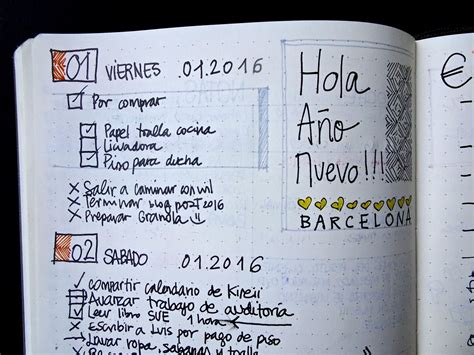 01 VIERNES .01.2016
Por comprar
Papel toalla cocina
Licuadora
Piso para ducha
Salir a caminar con wil
Terminar blog post 2016
Preparar Granola
Hola
Año
Nuevo!!!
BARCELONA
€
02 SABADO .01.2016
Compartir calendario de Kireii
Avanzar trabajo de auditoría
Leer libro SUE 1 hora
Escribir a Luis por pago de piso
Lavar ropa, sabanas y toalla